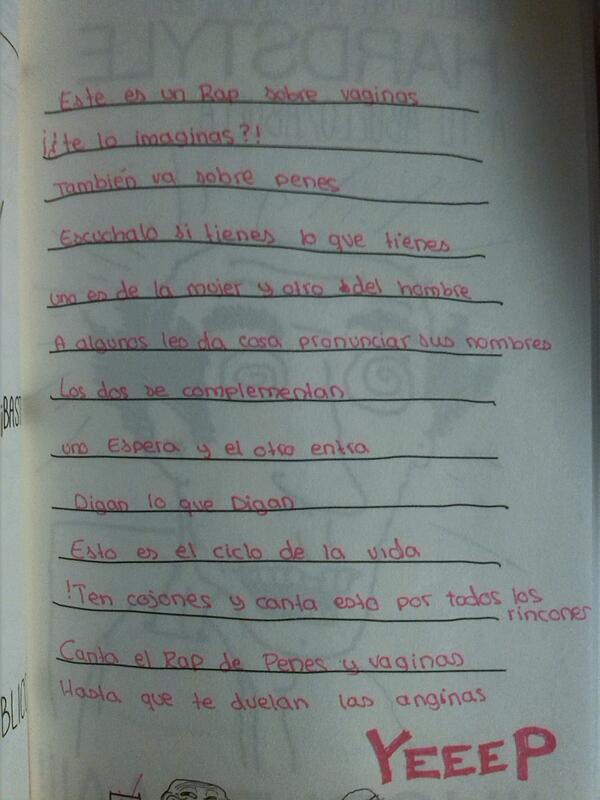 Este es un Rap sobre vaginas
¡¿te lo imaginas?!
También va sobre penes
Escuchalo si tienes lo que tienes
uno es de la mujer y otro del hombre
A algunos les da cosa pronunciar sus nombres
Los dos se complementan
uno Espera y el otro entra
Digan lo que Digan
Esto es el ciclo de la vida
!Ten cojones y canta esto por todos los
rincones
Canta el Rap de Penes y vaginas
Hasta que te duelan las anginas
YEEEP
HARDSTYLE
¡BAST
BLIC